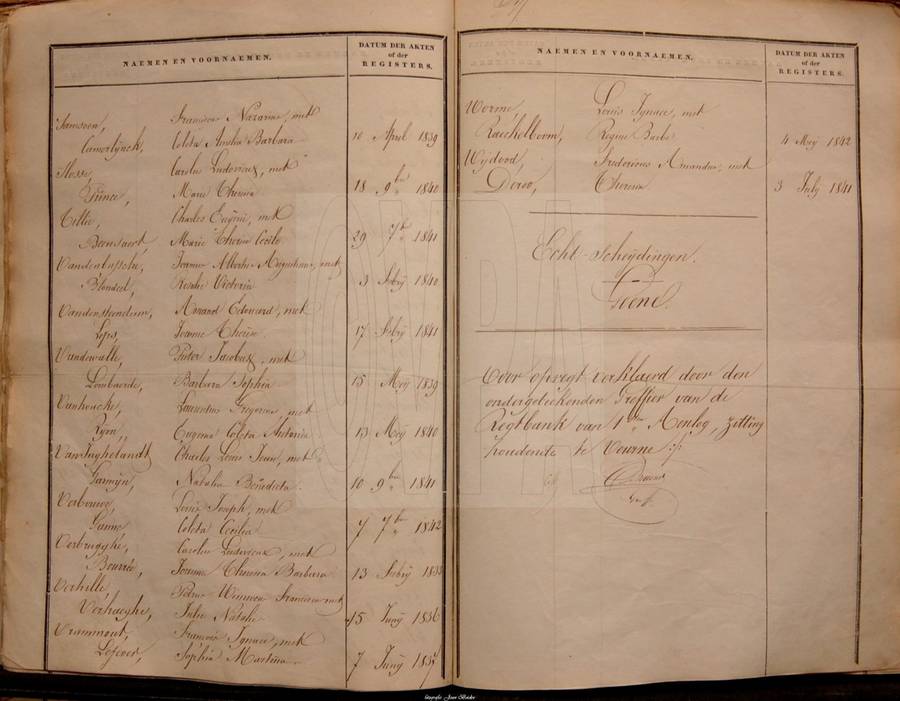 NAEMEN EN VOORNAEMEN.
DATUM DER AKTEN
of der
REGISTERS.
Samsoen, Franciscus Nazarius, met
Camerlynck, Coleta Amelia Barbara 10 April 1839
Carolus Ludovicus, met
Prince, Marie Theresia 18 9bre 1840
Tillie, Charles Eugène, met
Beernaert, Marie Therese Cecile 29 7bre 1841
Joannes Albertus Augustinus, met
Blondeel, Rosalie Victoria 3 Feby 1840
Vandensteendam, Amand Edouard, met
Leps, Jeanne Therese 17 Feby 1841
Vandewalle, Pieter Jacobus, met
Lombaerde, Barbara Sophia 15 Meÿ 1839
Vanhoucke, Laurentius Gregorius, met
Ryon, Eugenia Coleta Antonia 13 Meÿ 1840
Van Inghelandt, Charles Louis Jean, met
Garmyn, Natalia Benedicta 10 9bre 1841
Verbouwe, Louis Joseph, met
Coleta Cecilia 7 7bre 1842
Verbrugghe, Carolus Ludovicus, met
Bourrée, Joanna Theresia Barbara 13 Feby
Verhille, Petrus Winnocus Franciscus met
Verhaeghe, Julie Natalie 15 Juny 1836
Vrammout, Francois Ignace, met
Lefever, Sophia Martina 7 Juny 1837
NAEMEN EN VOORNAEMEN.
DATUM DER AKTEN
of der
REGISTERS.
Worme, Louis Ignace, met
Raeckelboom, Regine Barbe 4 Meÿ 1842
Wydood, Fredericus Amandus, met
Theresia 3 July 1841
Echt-Scheÿdingen.
Geene.
Voor opregt verklaerd door den
ondergeteekenden Greffier van de
Regtbank van 1en Aenleg, zitting
houdende te Veurne
Greff.